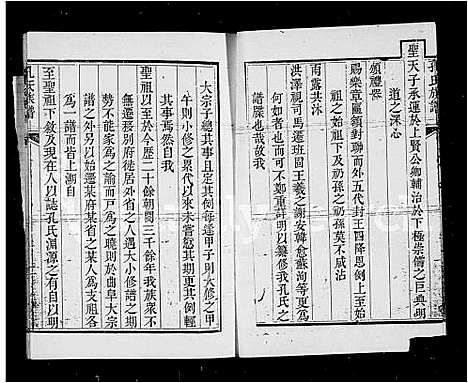 孔氏族譜
聖天子承運於上賢公卿輔治於下極崇儒之巨典明
道之深心
頒禮器
賜樂章匾額對聯而外五代封王四降恩倒上至始
祖之始祖下及礽孫之礽孫莫不咸沾
雨露共沐
洪澤視司馬遷班固王羲之謝安韓愈蘇洵等更為
何如也而可不鄭重詳明以纂修我孔氏之
譜牒也哉故我
大宗子總其事自定其例每逢甲子則大修之甲
午則小修之累代以來未嘗愆其期也其倒輕
其事焉然自我
聖祖以至於今歷二十餘朝閱三千餘年我族衆不
無遷移別府徙居外省之人遇大小修譜之期
勢不能家為之諭而戶為之曉則於曲阜大宗
譜之外另以始遷某府某省之某人為支祖各
為一譜而皆上溯自
至聖祖下敘及現在人以誌孔氏淵源之有自以明
孔氏族譜